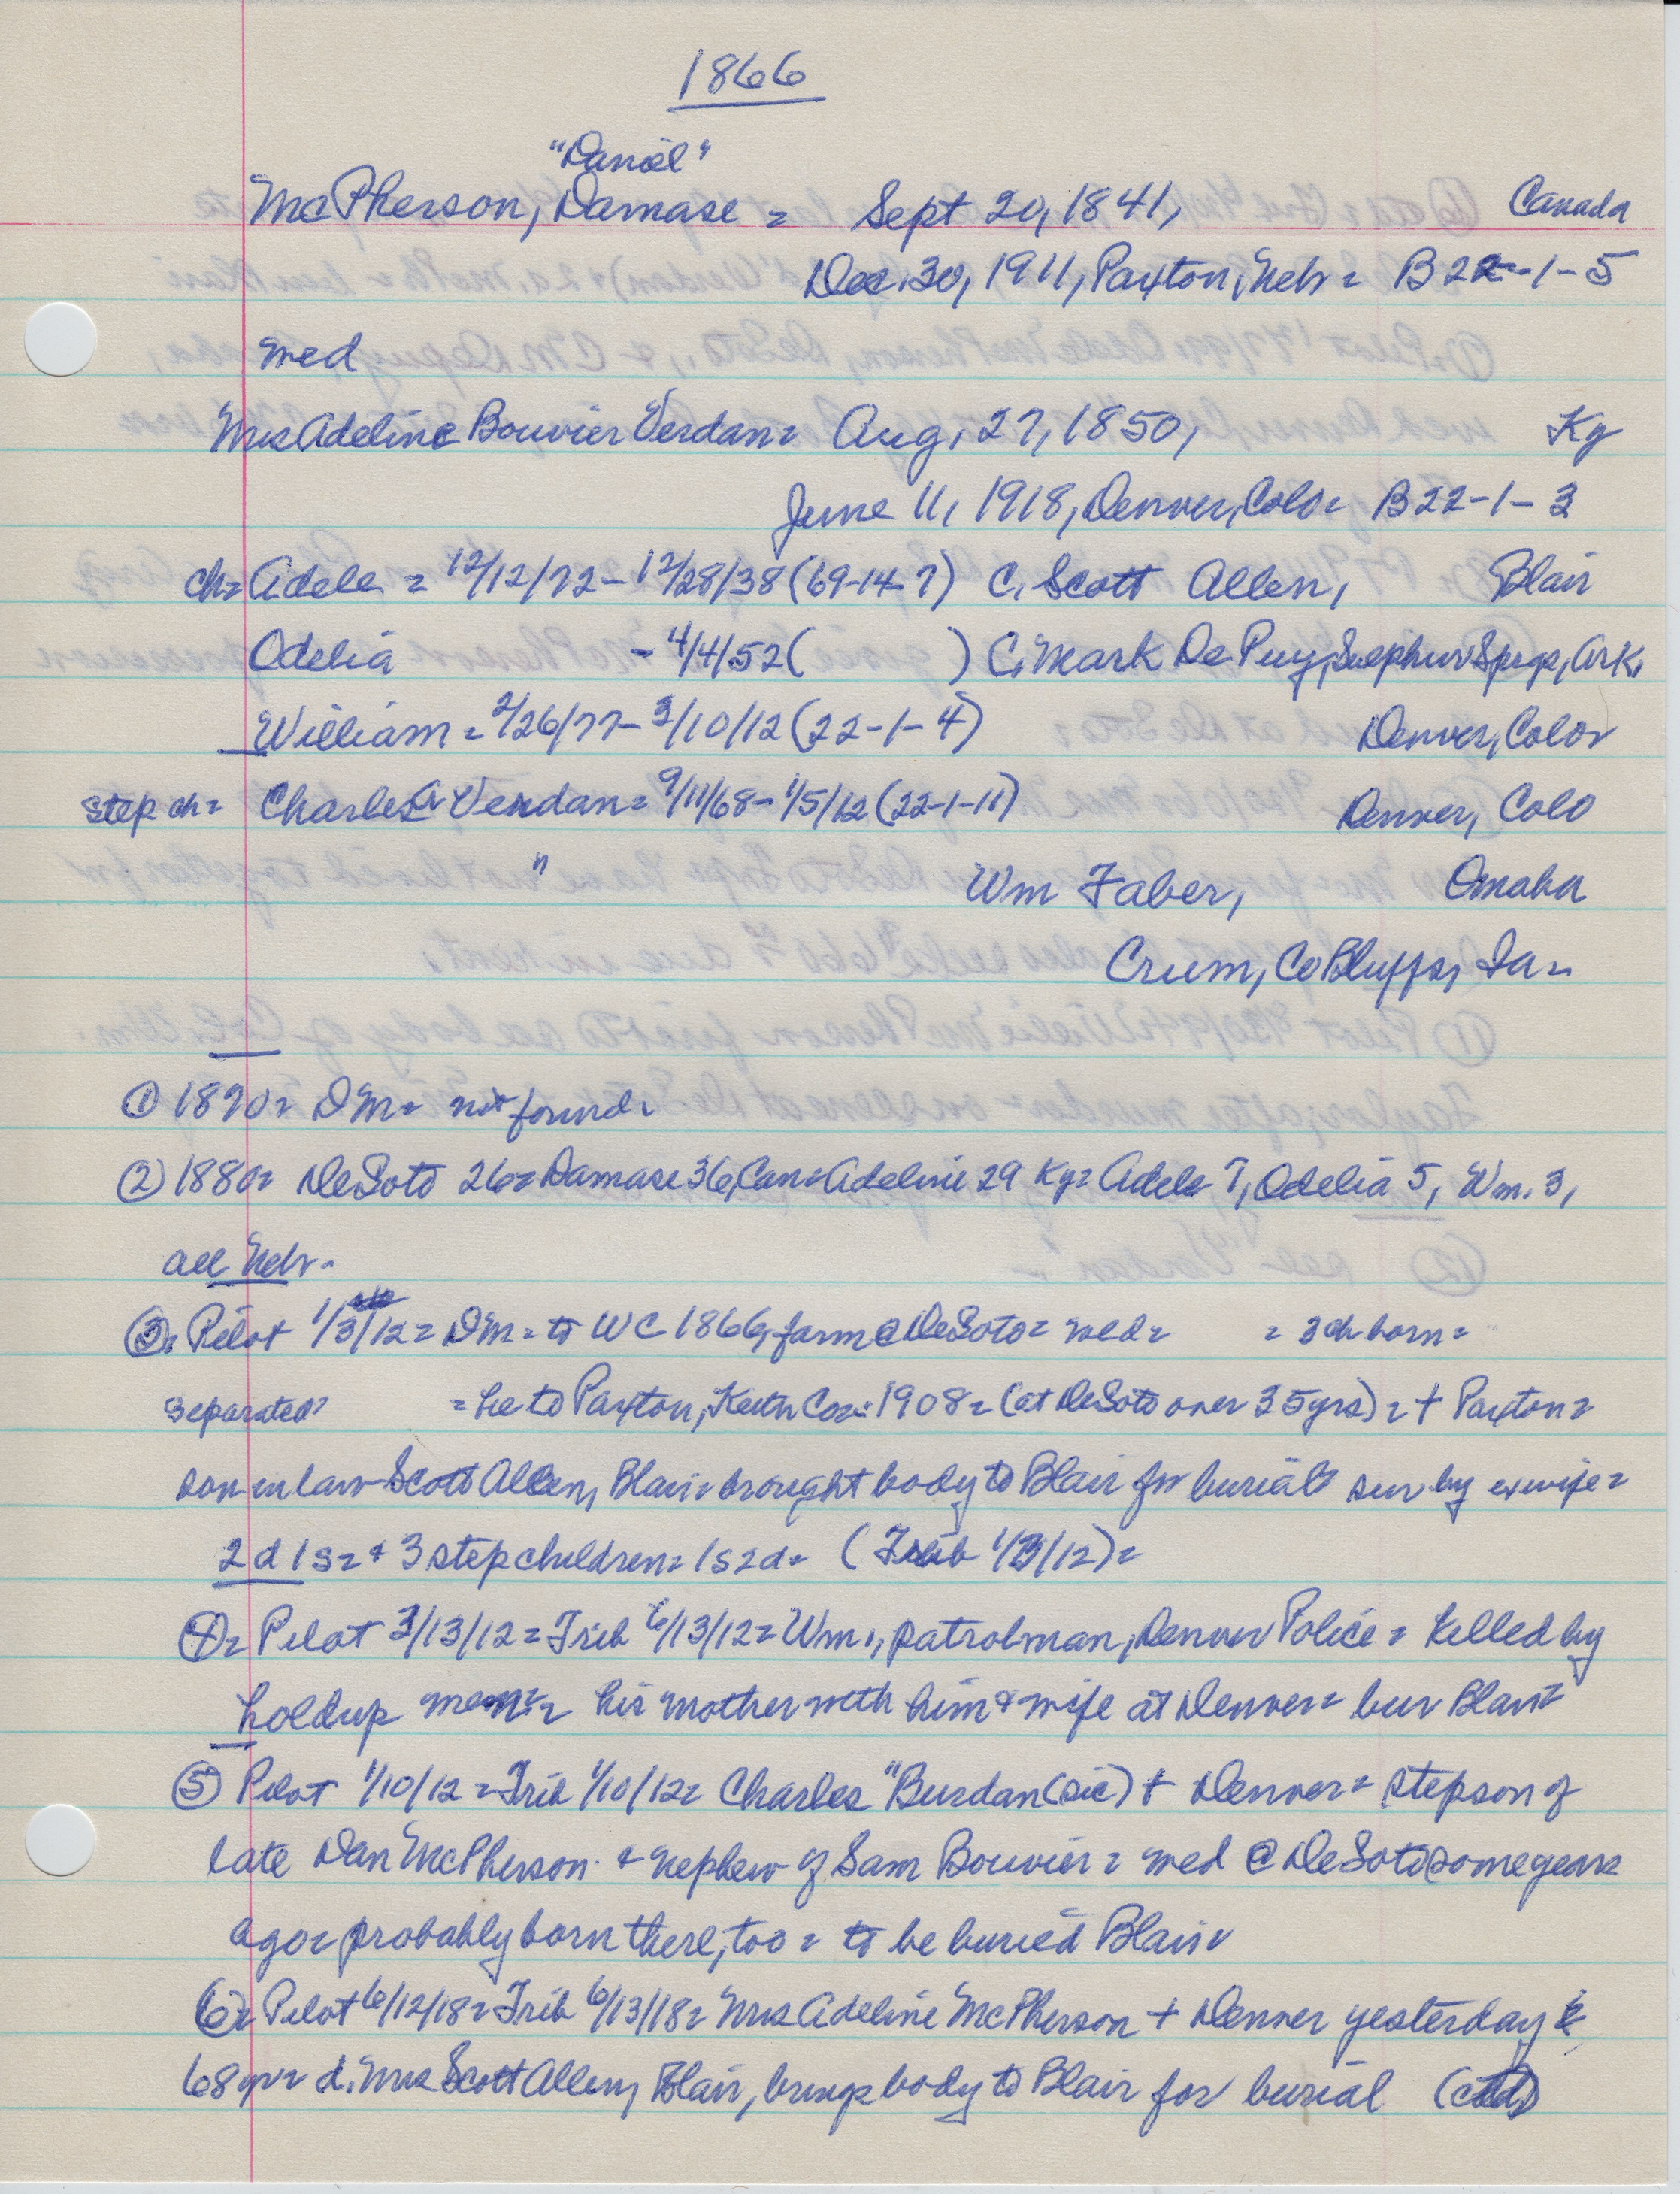 1866
"Daniel"
McPherson, Damase = Sept 20, 1841, Canada
Dec. 30, 1911, Paxton, Nebr = B 22-1-5
med
Mrs Adeline Bouvier Verdan = Aug. 27, 1850, Ky
June 11, 1918, Denver, Colo = B 22-1-3
ch = Adele = 12/12/72 - 12/28/38 (69-14-7) C. Scott Allen, Blair
Odelia - 4/4/52 ( ) C. Mark De Puy, Sulphur Sprgs, Ark.
William = 2/26/77 - 3/10/12 (22-1-4) Denver, Colo
step ch = Charles Verdan = 9/11/68 - 1/5/12 (22-1-11) Denver, Colo
" Wm Faber, Omaha
Crum, Co Bluffs, Ia =
① 1870 = DM = not found =
② 1880 = DeSoto 26 = Damase 36, Can = Adeline 29 Ky = Adele 7, Odelia 5, Wm. 3,
all Nebr.
③ = Pilot 1/3/12 = DM = to WC 1866, farm @ DeSoto = med = = 3 ch born =
separated = he to Paxton, Keith Co = 1908 = (at DeSoto over 35 yrs) = + Paxton =
son in law Scott Allen, Blair = brought body to Blair for burial = sur by exwife =
2 d 1 s = + 3 stepchildren = 1s 2d = (Trib 1/3/12) =
④ = Pilot 3/13/12 = Trib 6/13/12 = Wm., patrolman, Denver Police = killed by
holdup men = his mother with him & wife at Denver = bur Blair =
⑤ Pilot 1/10/12 = Trib 1/10/12 = Charles "Burdan (sic) + Denver = stepson of
late Dan McPherson & nephew of Sam Bouvier = med @ DeSoto some years
ago = probably born there, too = to be buried Blair =
⑥ = Pilot 6/12/18 = Trib 6/13/18 = Mrs Adeline McPherson + Denver yesterday
68 yr = d. Mrs Scott Allen, Blair, brings body to Blair for burial (ctd)